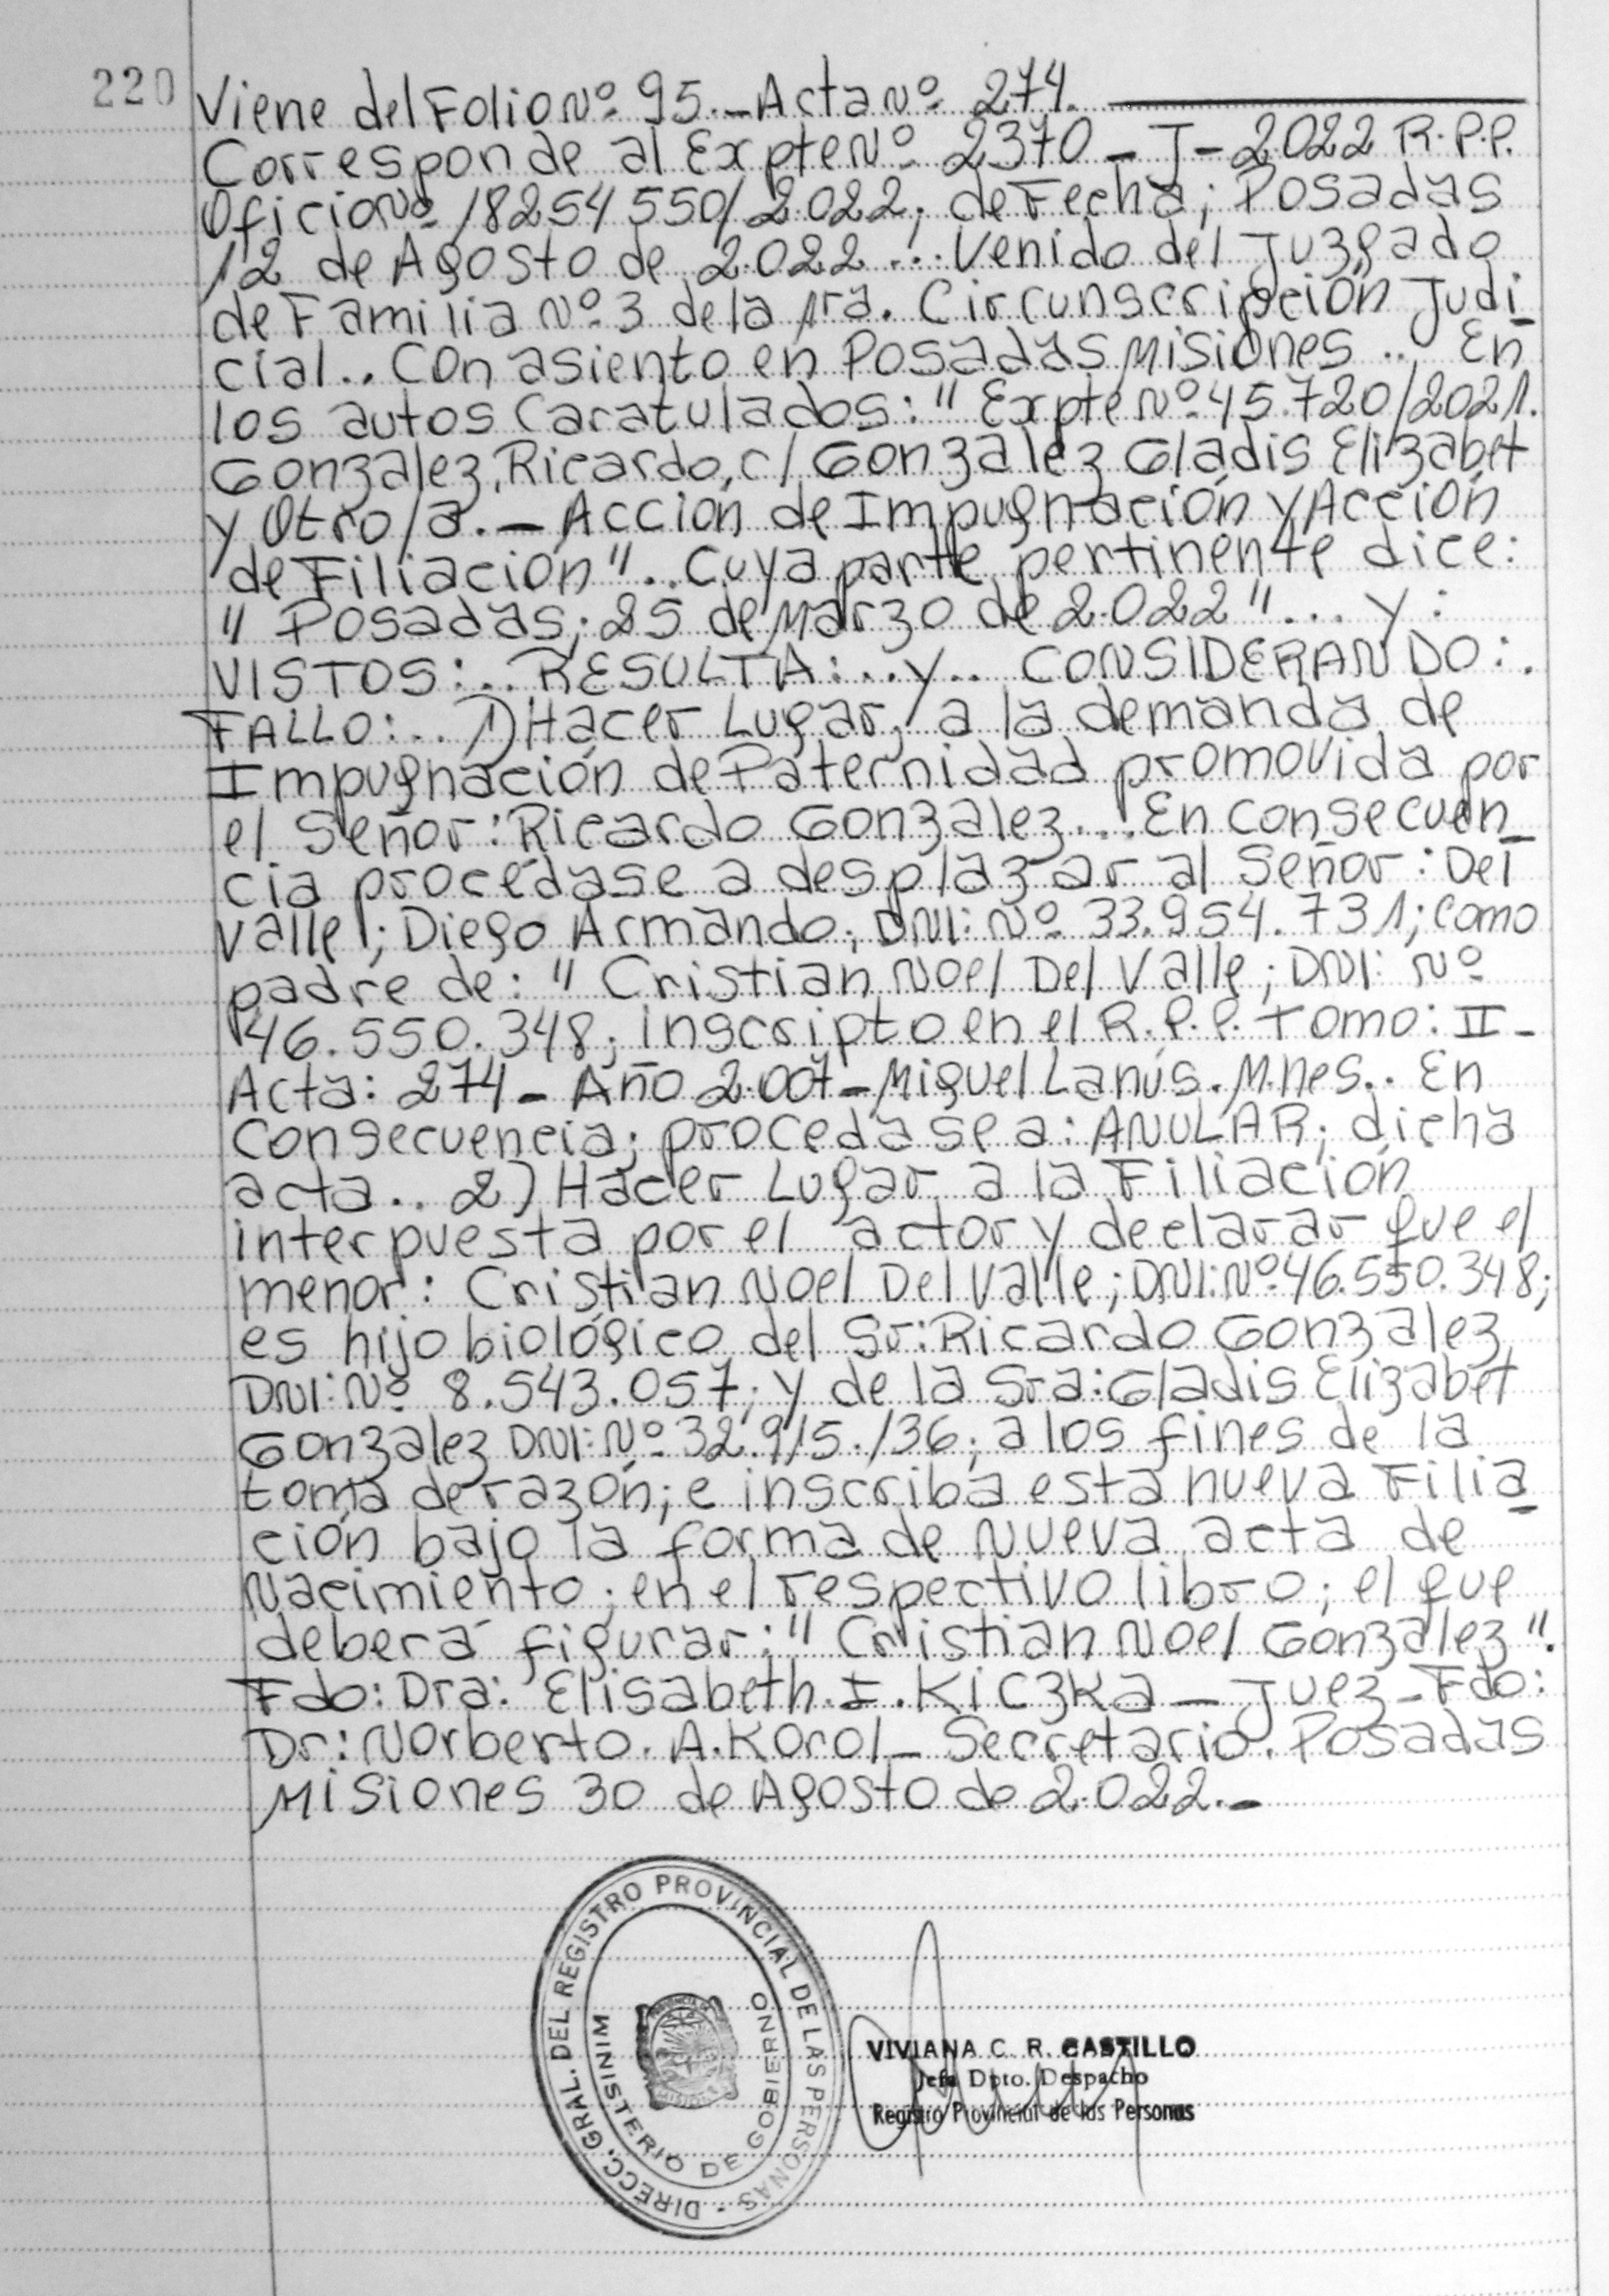 220
Viene del Folio Nº 95.- Acta Nº 274.
Corresponde al Expte Nº 2370 - J - 2022 R.P.P.
Oficio Nº 18254550/2.022; de Fecha; Posadas
12 de Agosto de 2.022... Venido del Juzgado
de Familia Nº 3 de la 1ra. Circunscripción Judi
cial.. Con asiento en Posadas Misiones.. En
los autos Caratulados: "Expte Nº 45.720/2021.
Gonzalez, Ricardo, c/ Gonzalez Gladis Elizabet
y Otro/a.- Acción de Impugnación y Acción
de Filiación".. Cuya parte pertinente dice:
"Posadas; 25 de Marzo de 2.022"... y:
VISTOS:.. RESULTA:.. y.. CONSIDERANDO:.
FALLO:.. 1) Hacer Lugar, a la demanda de
Impugnación de Paternidad promovida por
el Señor: Ricardo Gonzalez... En consecuen
cia procédase a desplazar al Señor: Del
Valle; Diego Armando; DNI: Nº 33.954.731; como
padre de: "Cristian Noel Del Valle; DNI: Nº
46.550.348; inscripto en el R.P.P. Tomo: II -
Acta: 274 - Año 2.007 - Miguel Lanús. M.nes.. En
Consecuencia; procedase a: ANULAR; dicha
acta.. 2) Hacer Lugar a la Filiación
interpuesta por el actor y declarar que el
menor: Cristian Noel Del Valle; DNI: Nº 46.550.348;
es hijo biológico del Sr: Ricardo Gonzalez
DNI: Nº 8.543.057; y de la Sra: Gladis Elizabet
Gonzalez DNI: Nº 32.915.136; a los fines de la
toma de razón; e inscriba esta nueva Filia
ción bajo la forma de Nueva acta de
Nacimiento; en el respectivo libro; el que
deberá figurar: "Cristian Noel Gonzalez".
Fdo: Dra: Elisabeth. I. Kiczka - Juez - Fdo:
Dr: Norberto. A. Korol - Secretario. Posadas
Misiones 30 de Agosto de 2.022.-
DIRECC. GRAL. DEL REGISTRO PROVINCIAL DE LAS PERSONAS -
MINISTERIO DE GOBIERNO
VIVIANA C. R. CASTILLO
Jefa Dpto. Despacho
Registro Provincial de las Personas